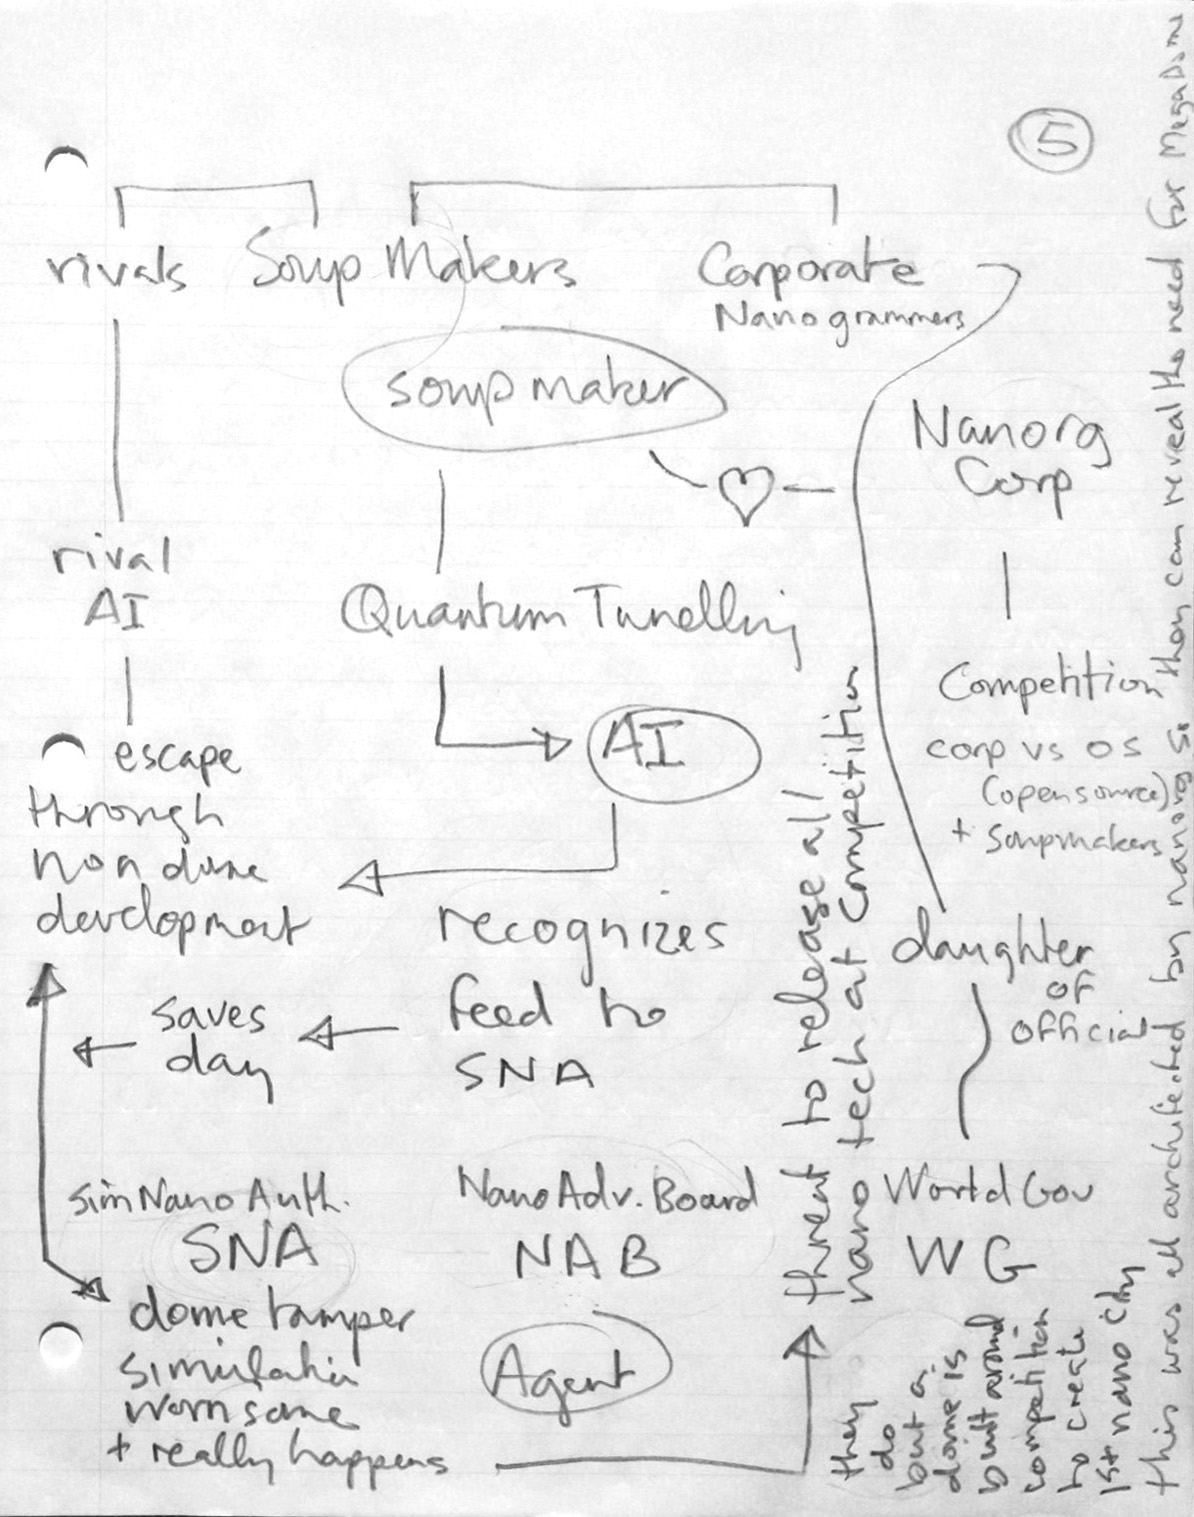 5
rivals Soup Makers Corporate
Nanogrammers
soup maker
Nanorg
Corp
rival
AI
Quantum Tunelling
AI
Competition
corp vs OS
(opensource)
+ soupmakers
escape
through
non dome
development
recognizes
feed to
SNA
saves
day
daughter
of
official
simNano Auth.
SNA
NanoAdv. Board
NAB
World Gov
WG
dome tamper
simulatin
worrisome
+ really happens
Agent
threat to release all
nano tech at competition
they
do
but a
dome is
built around
competition
to create
1st nano city
this was all architected by nanorg so they can reveal the need for MegaDome